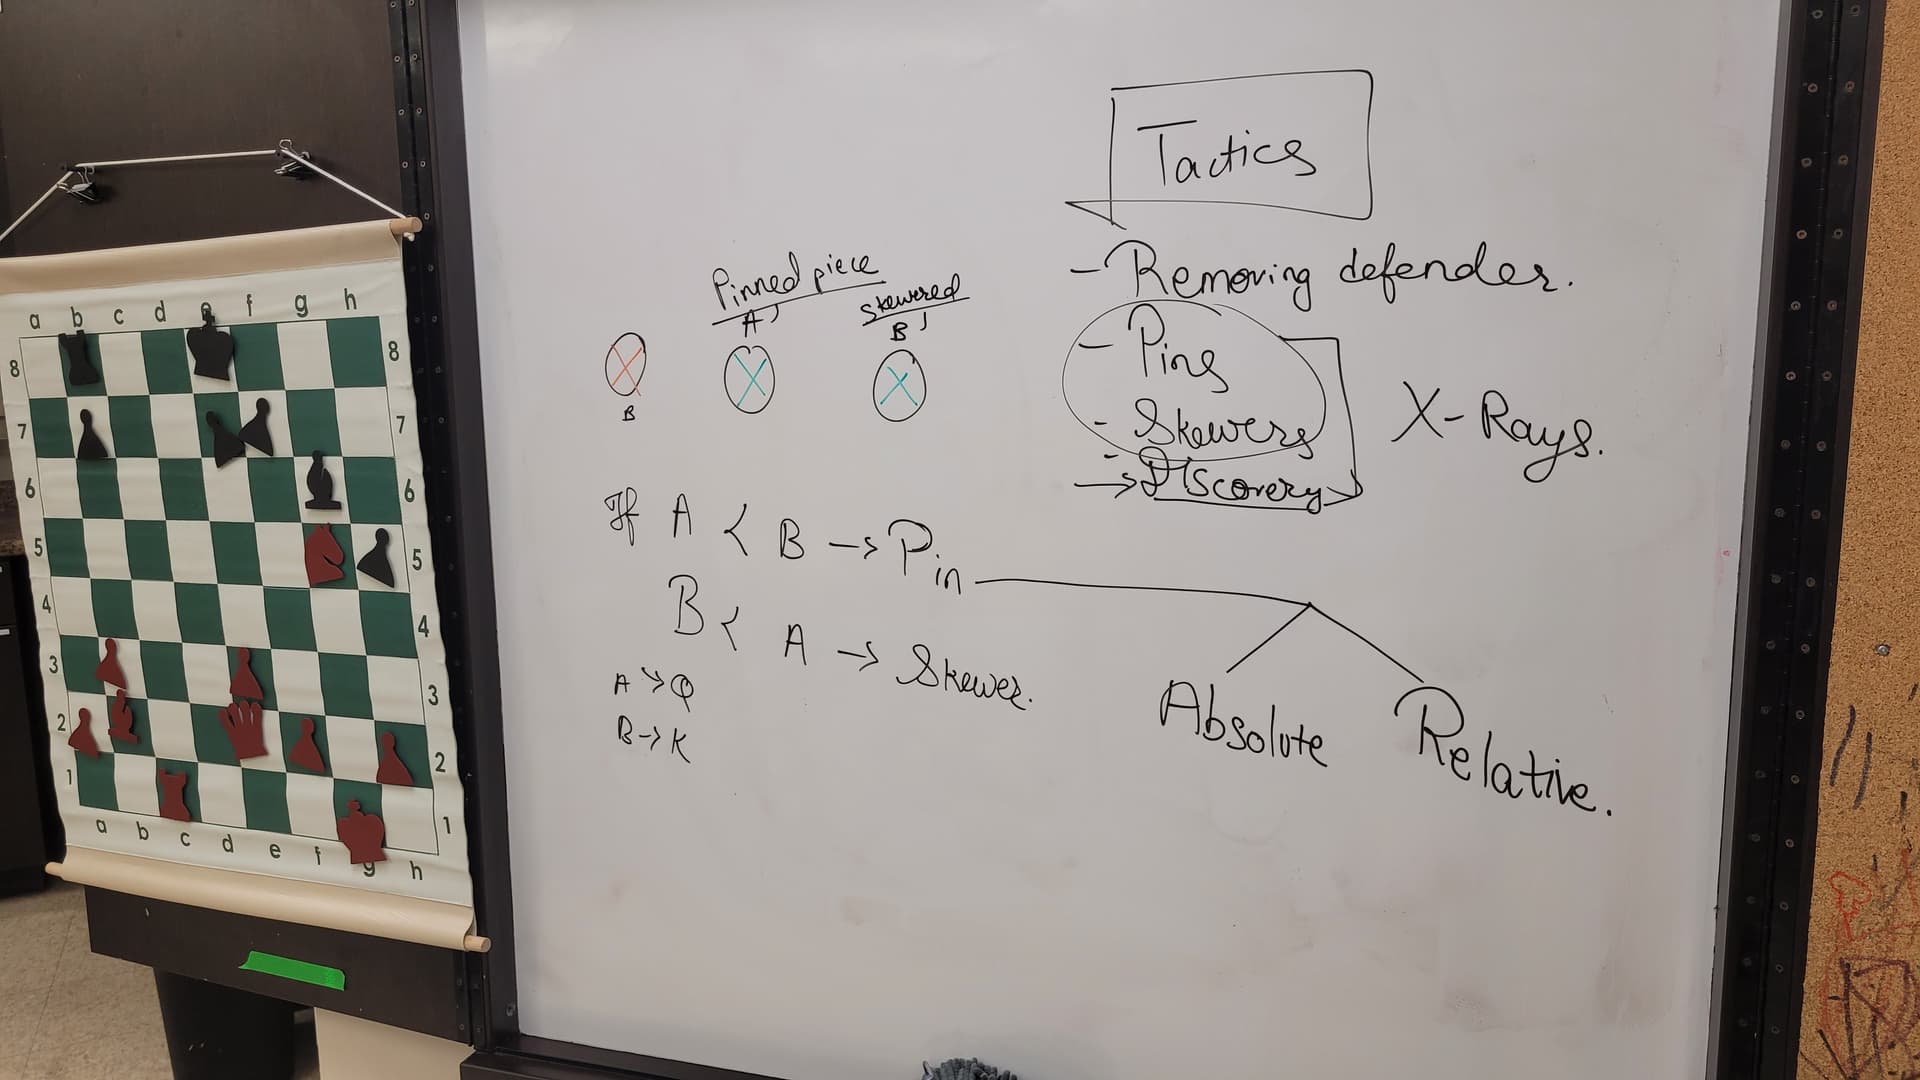 Tactics
- Removing defender.
- Pins
- Skewers
→ Discovery
X-Rays.
Pinned piece
A
skewered
B
B
If A < B → Pin
B < A → Skewer.
A → Q
B → K
Absolute
Relative.
a b c d e f g h
8 8
7 7
6 6
5 5
4 4
3 3
2 2
1 1
a b c d e f g h